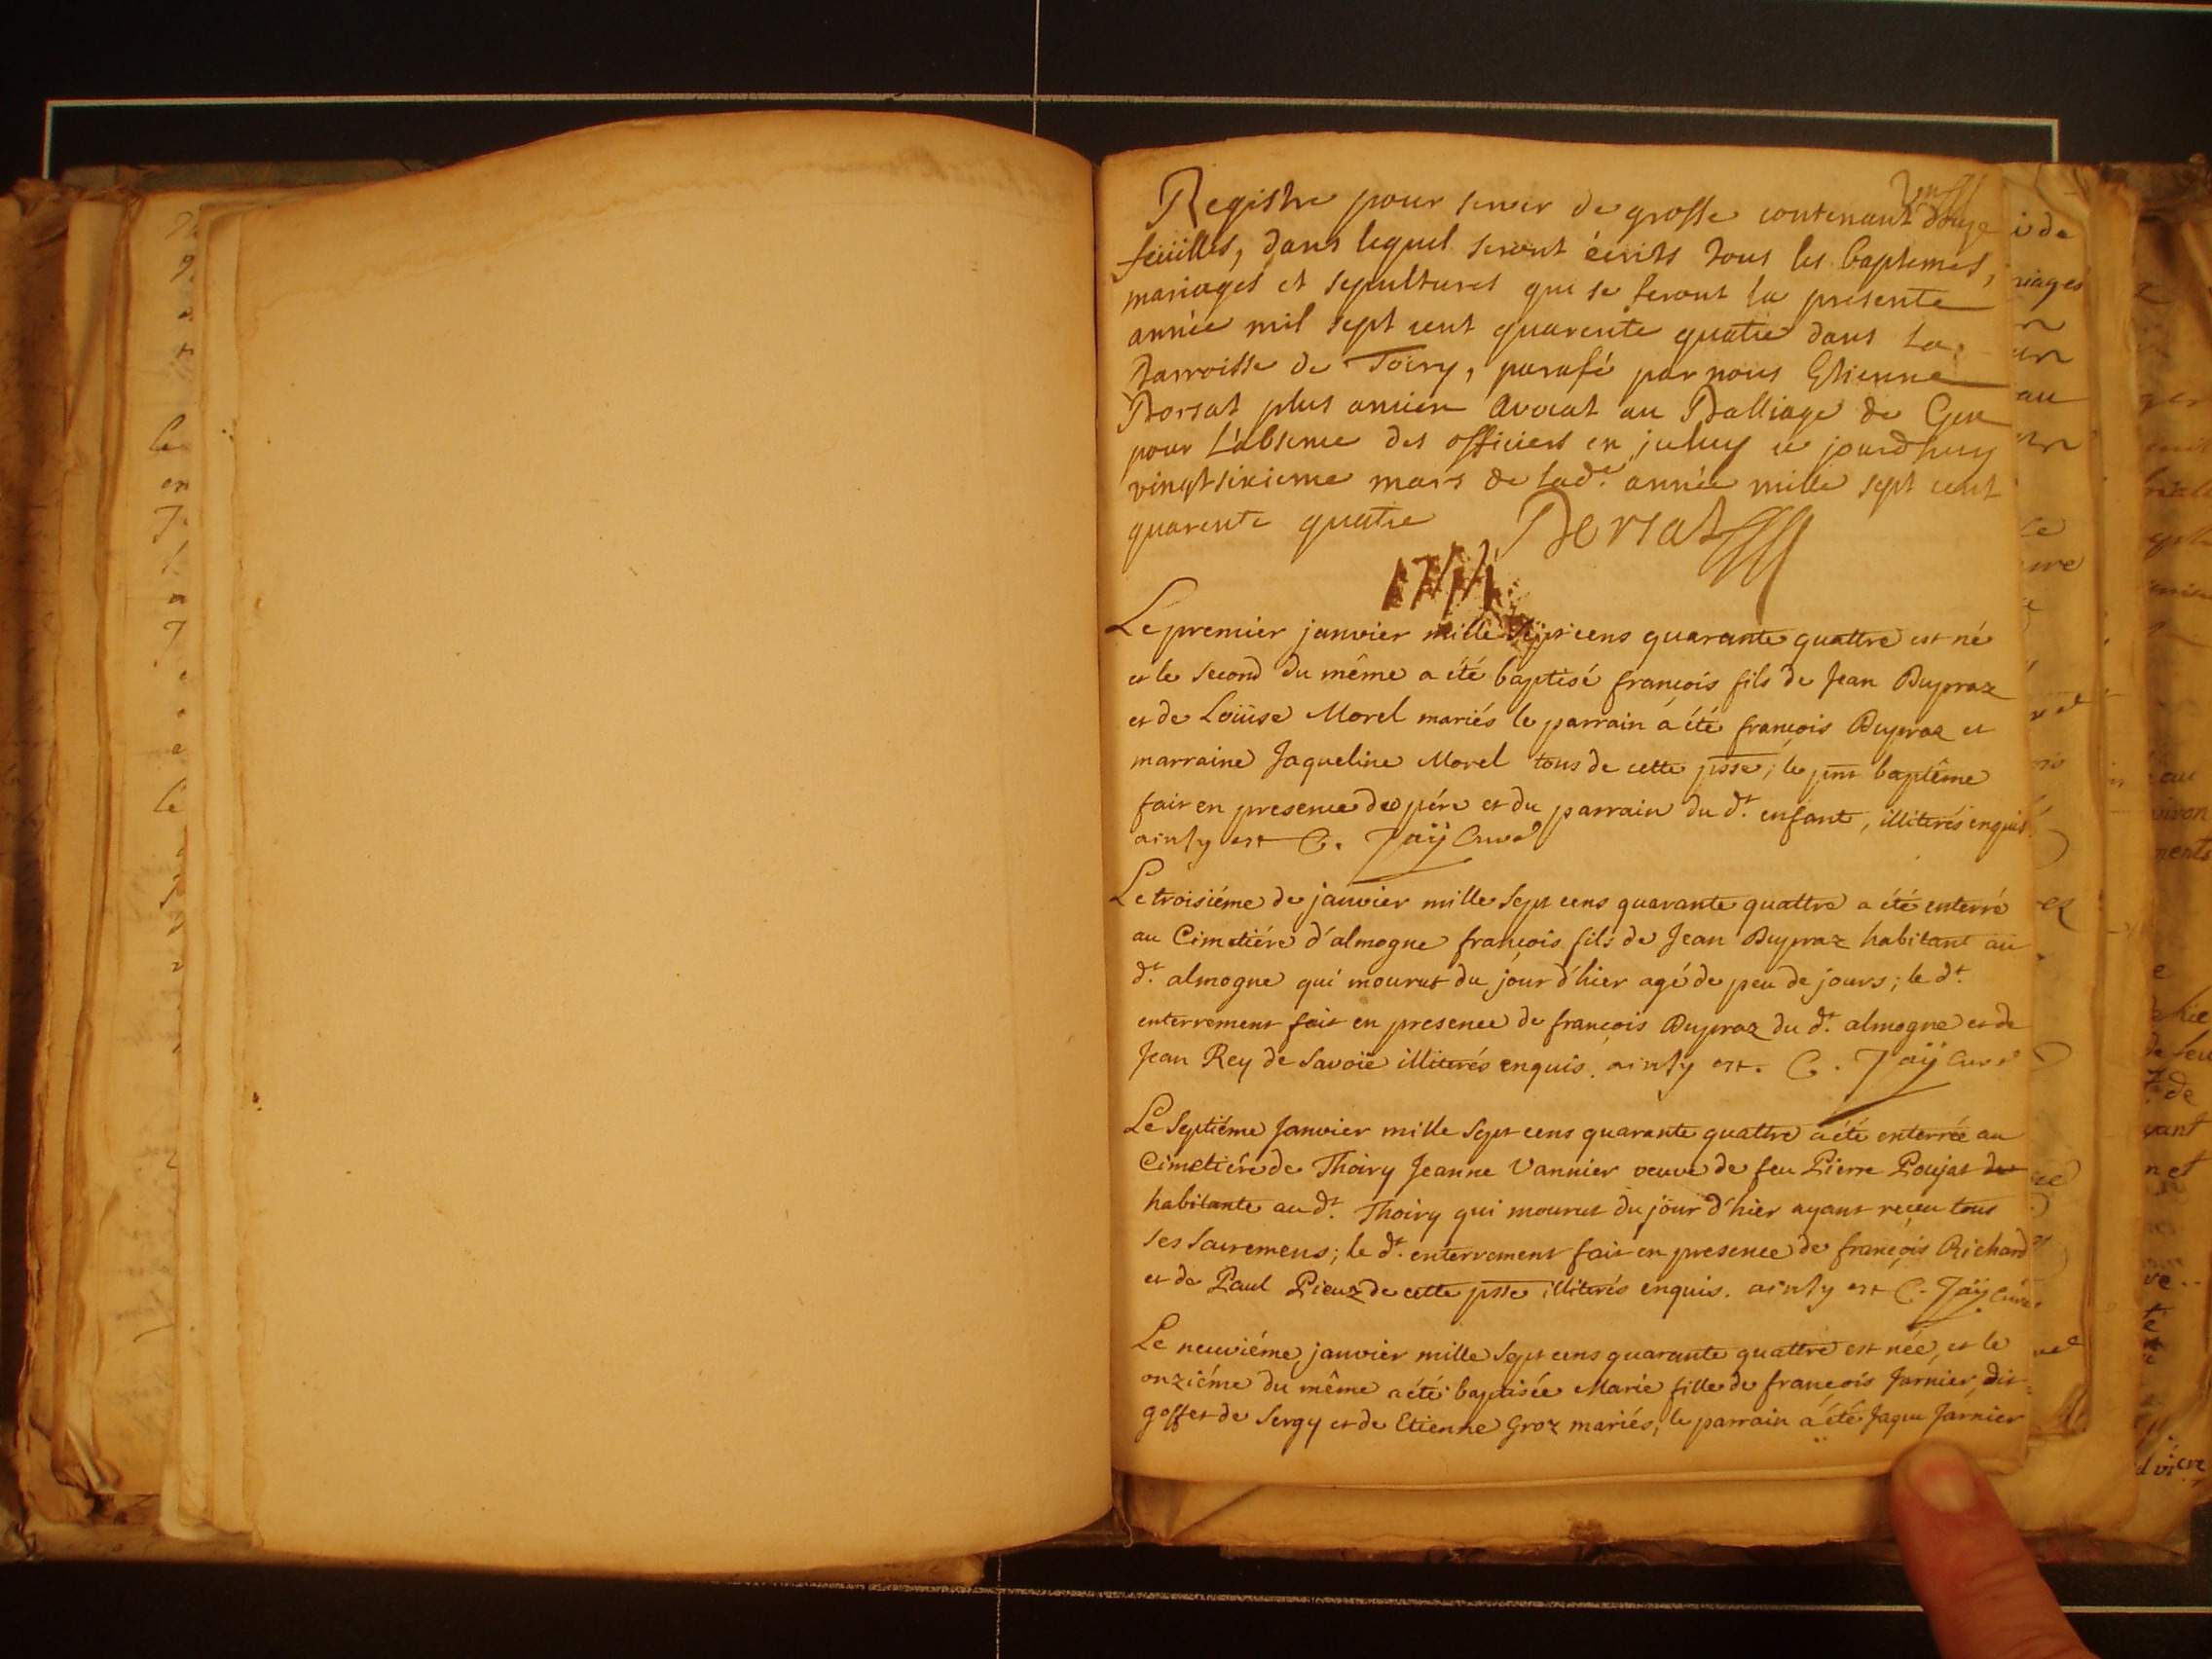 Registre pour servir de grosse contenant douze
feüilles, dans lequel seront écrits tous les baptemes,
mariages et sepultures qui se feront la presente
année mil sept cent quarente quatre dans la
Parroisse de Toiry, parafé par nous Etienne
Borsat plus ancien avocat au Balliage de Gex
pour l'absence des officiers en ce jourdhuy
vingt sixieme mars de lad.e année mille sept cent
quarente quatre Borsat
1744
Le premier janvier mille sept cens quarante quattre est né
et le second du même a été baptisé françois fils de Jean Dupraz
et de Loüise Morel mariés le parrain a été françois Dupraz et
marraine Jaqueline Morel tous de cette psse; le pnt baptême
fait en presence de père et du parrain du d.t enfant, illiterés enquis
ainsy est C. Jaÿ Curé
Le troisiéme de janvier mille sept cens quarante quattre a été enterré
au Cimetiére d'almogne françois fils de Jean Dupraz habitant au
d.t almogne qui mourut du jour d'hier agé de peu de jours; le d.t
enterrement fait en presence de françois Dupraz du d.t almogne et de
Jean Rey de Savoie illiterés enquis. ainsy est. C. Jaÿ Curé
Le Septiéme Janvier mille Sept cens quarante quattre a été enterrée au
Cimetiére de Thoiry Jeanne Vannier veuve de feu Pierre Poujat
habitante au d.t Thoiry qui mourut du jour d'hier ayant reçeu tous
ses Sacremens; le d.t enterrement fait en presence de françois Richard
et de Paul Pieuz de cette psse illiterés enquis. ainsy est C. Jaÿ Curé
Le neuviéme janvier mille Sept cens quarante quattre est née, et le
onziéme du même a été baptisée Marie fille de françois Jarnier, dit
goffet de Sergy et de Etienne Groz mariés, le parrain a été Jaque Jarnier